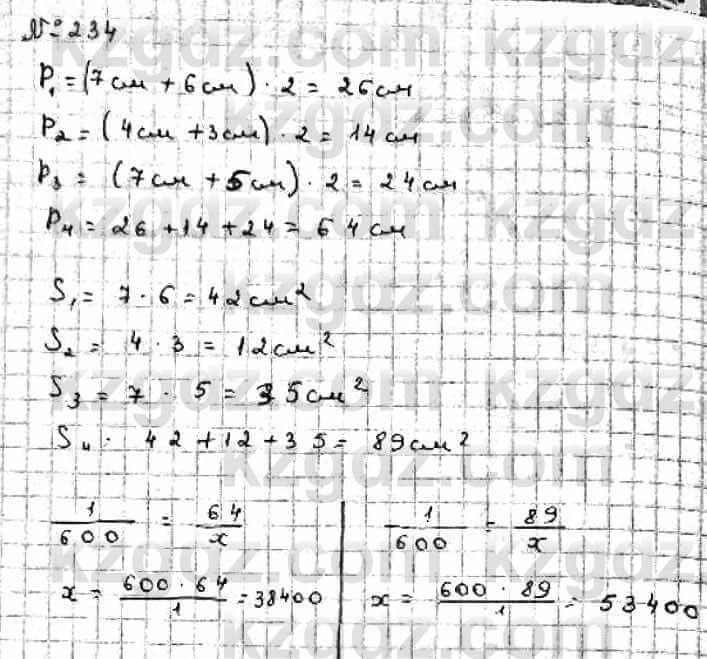 № 234
P₁ = (7 см + 6 см) · 2 = 26 см
P₂ = (4 см + 3 см) · 2 = 14 см
P₃ = (7 см + 5 см) · 2 = 24 см
P₄ = 26 + 14 + 24 = 64 см
S₁ = 7 · 6 = 42 см²
S₂ = 4 · 3 = 12 см²
S₃ = 7 · 5 = 35 см²
S₄ · 42 + 12 + 35 = 89 см²
1/600 = 64/x | 1/600 = 89/x
x = 600 · 64/1 = 38400 | x = 600 · 89/1 = 53400
kzgdz.com